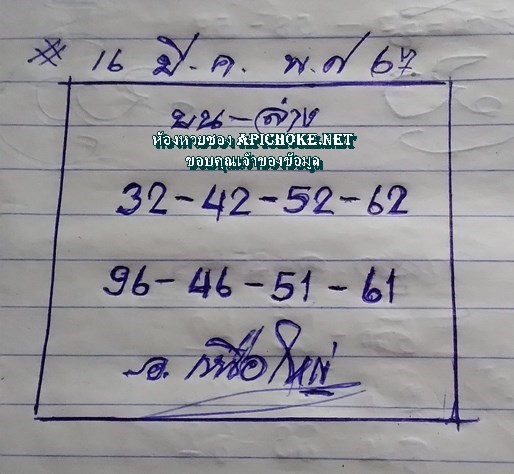 ※ 16 มี.ค. พ.ศ 67
บน-ล่าง
ห้องหวยซอง APICHOKE.NET
ขอบคุณเจ้าของข้อมูล
32-42-52-62
96-46-51-61
อ. ใหญ่